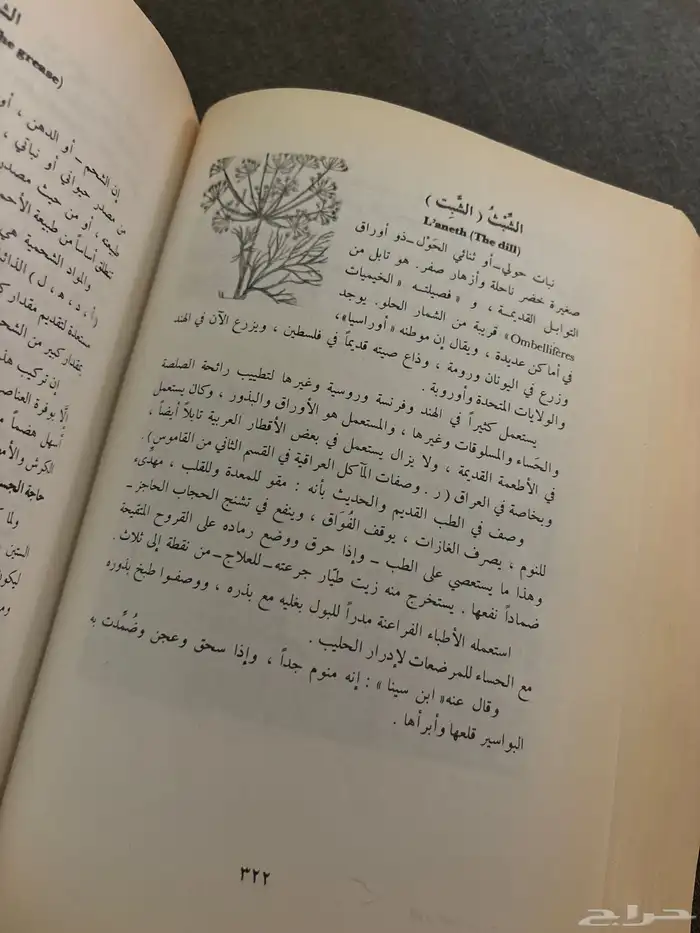 الشِّبِثُّ ( الشَّبِت )
L'aneth (The dill)
نبات حولي_أو ثنائي الحَوْل_ذو أوراق
صغيرة خضر ناحلة وأزهار صفر. هو تابل من
التوابل القديمـة ، و « فصيلتـه « الخيميات
Ombellifères» قريبة من الشمار الحلو. يوجد
في أماكن عديدة ، ويقال إن موطنه «أوراسيا»،
وزرع في اليونان ورومة ، وذاع صيته قديماً في فلسطين ، ويزرع الآن في الهند
والولايات المتحدة وأوروبة .
يستعمل كثيراً في الهند وفرنسة وروسية وغيرها لتطييب رائحة الصلصة
والحَساء والمسلوقات وغيرها ، والمستعمل هو الأوراق والبذور ، وكان يستعمل
في الأطعمة القديمة ، ولا يزال يستعمل في بعض الأقطار العربية تابلاً أيضاً ،
وبخاصة في العراق ( ر . وصفات المآكل العراقية في القسم الثاني من القاموس ) .
وصف في الطب القديم والحديث بأنه : مقو للمعدة وللقلب ، مهدِّىء
للنوم ، يصرف الغازات ، يوقف الفُوَاق ، وينفع في تشنج الحجاب الحاجز _
وهذا ما يستعصي على الطب _ وإذا حرق ووضع رماده على القروح المتقيحة
ضماداً نفعها . يستخرج منه زيت طيّار جرعته_للعلاج_من نقطة إلى ثلاث .
استعمله الأطباء الفراعنة مدراً للبول بغليه مع بذره ، ووصفوا طبخ بذوره
مع الحساء للمرضعات لإدرار الحليب .
وقال عنه« ابن سينا » : إنه منوم جداً ، وإذا سحق وعجن وضُمِّدت به
البواسير قلعها وأبرأها .
٣٢٢
he grease)
إن الشحم _ أو الدهن ، أو
من مصدر حيواني أو نباتي ،
طبيعته ، أو من حيث مصدر
تتطلق أساساً من طبيعة الأحم
والمواد الشحمية هي
( أ ، د ، هـ ، ل ) الذائ
مستعدة لتقديم مقدار ك
بمقدار كبير من الشحم
إن تركيب هذ
ألا بوفرة العناصر
أسهل هضماً م
الكرش والأم
حاجة الجس
ولما ك
الستين
ليكون
حراج